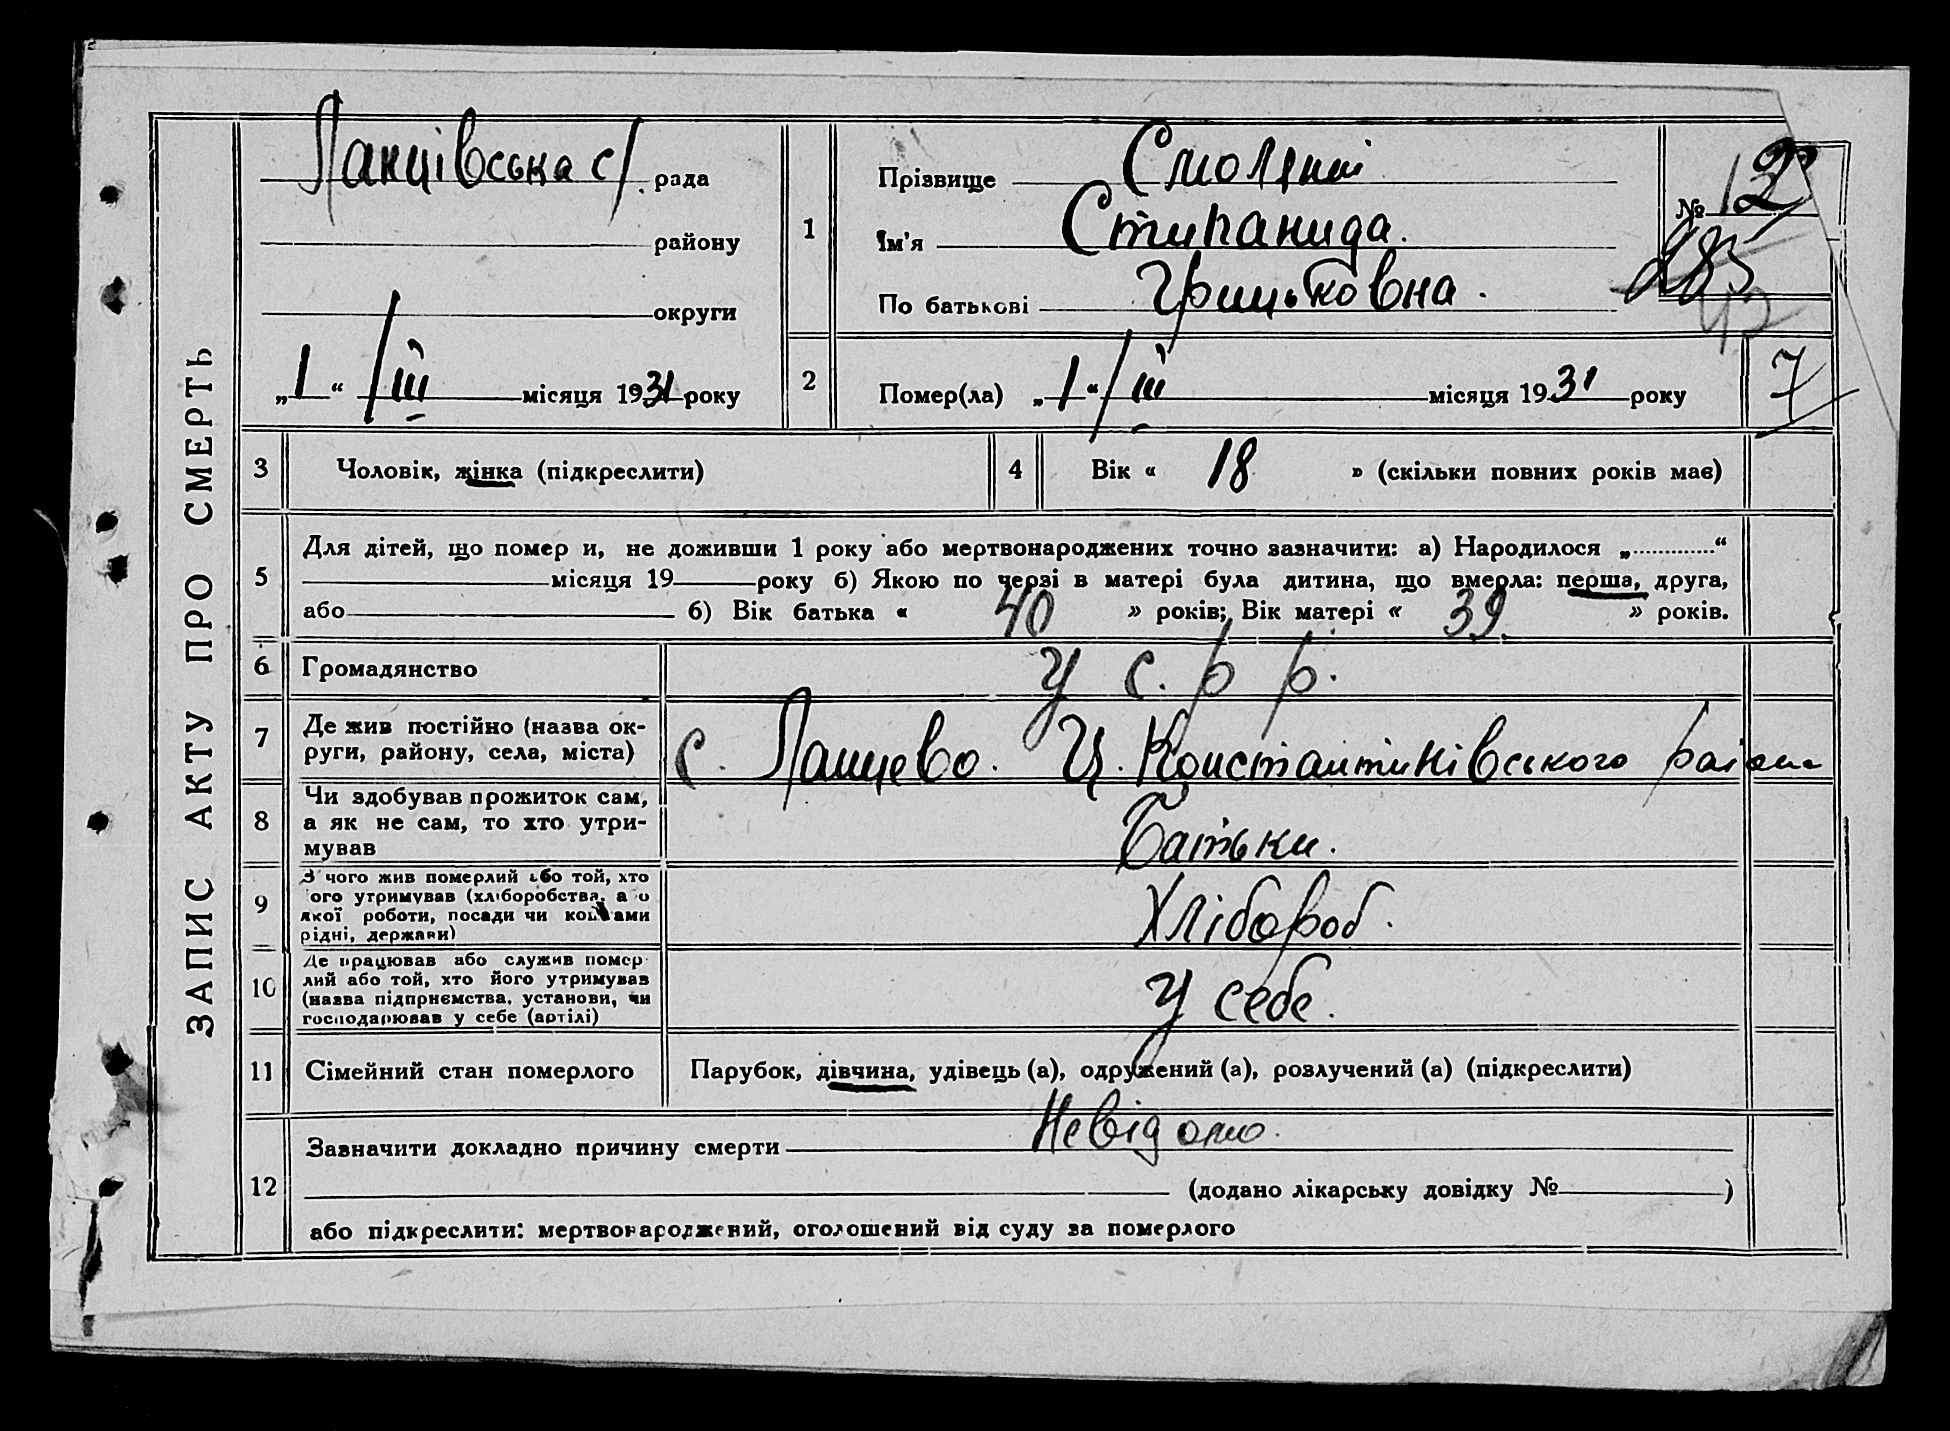 ЗАПИС АКТУ ПРО СМЕРТЬ
Ланцівська с/ рада
району
округи
„1“ /III місяця 1931 року
1
Прізвище
Ім'я Стипанида.
По батькові Грицьковна.
№ 12
285
2
Помер(ла) „1“ / III місяця 1931 року
7
3 Чоловік, жінка (підкреслити)
4 Вік « 18 » (скільки повних років має)
5 Для дітей, що помер и, не доживши 1 року або мертвонароджених точно зазначити: а) Народилося „.............“
місяця 19 року б) Якою по черзі в матері була дитина, що вмерла: перша, друга,
або б) Вік батька « 40 » років; Вік матері « 39. » років.
6 Громадянство У С. Р Р.
7 Де жив постійно (назва ок-
руги, району, села, міста)
с. Ланцево. Ц. Константинівського району
8 Чи здобував прожиток сам,
а як не сам, то хто утри-
мував
Батьки.
9 З чого жив померлий або той, хто
ого утримував (хліборобства, а о
якої роботи, посади чи коштами
рідні, держави)
Хлібороб.
10 Де працював або служив помер
лий або той, хто його утримував
(назва підприємства, установи, чи
господарював у себе (артілі)
У себе.
11 Сімейний стан померлого Парубок, дівчина, удівець (а), одружений (а), розлучений (а) (підкреслити)
12 Зазначити докладно причину смерти Невідомо.
(додано лікарську довідку № )
або підкреслити: мертвонароджений, оголошений від суду за померлого